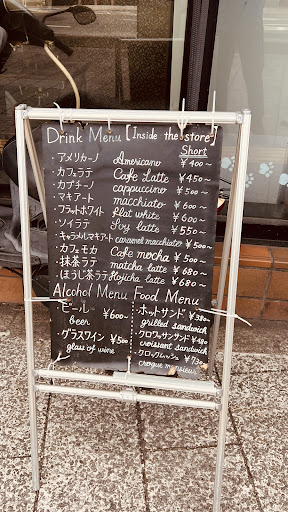 Drink Menu [Inside the store]
Short
・アメリカーノ Americano ¥400~
・カフェラテ Cafe Latte ¥450~
・カプチーノ cappuccino ¥500~
・マキアート macchiato ¥600~
・フラットホワイト flat white ¥600~
・ソイラテ Soy latte ¥550~
・キャラメルマキアート caramel macchiato ¥500~
・カフェモカ Cafe mocha ¥500~
・抹茶ラテ matcha latte ¥680~
・ほうじ茶ラテ Hojicha latte ¥680~
Alcohol Menu
・ビール ¥600~
beer
・グラスワイン ¥500~
glass of wine
Food Menu
・ホットサンド ¥380~
grilled sandwich
・クロワッサンサンド ¥480
croissant sandwich
・クロックムッシュ
croque monsieur